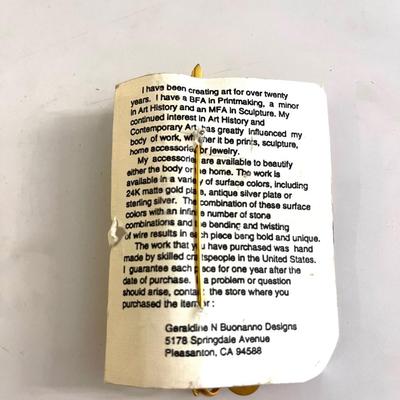 I have been creating art for over twenty
years. I have a BFA in Printmaking, a minor
in Art History and an MFA in Sculpture. My
continued interest in Art History and
Contemporary Art has greatly influenced my
body of work, whether it be prints, sculpture,
home accessories or jewelry.
My accessories are available to beautify
either the body or the home. The work is
available in a variety of surface colors, including
24K matte gold plate, antique silver plate or
sterling silver. The combination of these surface
colors with an infinite number of stone
combinations and the bending and twisting
of wire results in each piece being bold and unique.
The work that you have purchased was hand
made by skilled craftspeople in the United States.
I guarantee each piece for one year after the
date of purchase. If a problem or question
should arise, contact the store where you
purchased the item or :
Geraldine N Buonanno Designs
5178 Springdale Avenue
Pleasanton, CA 94588